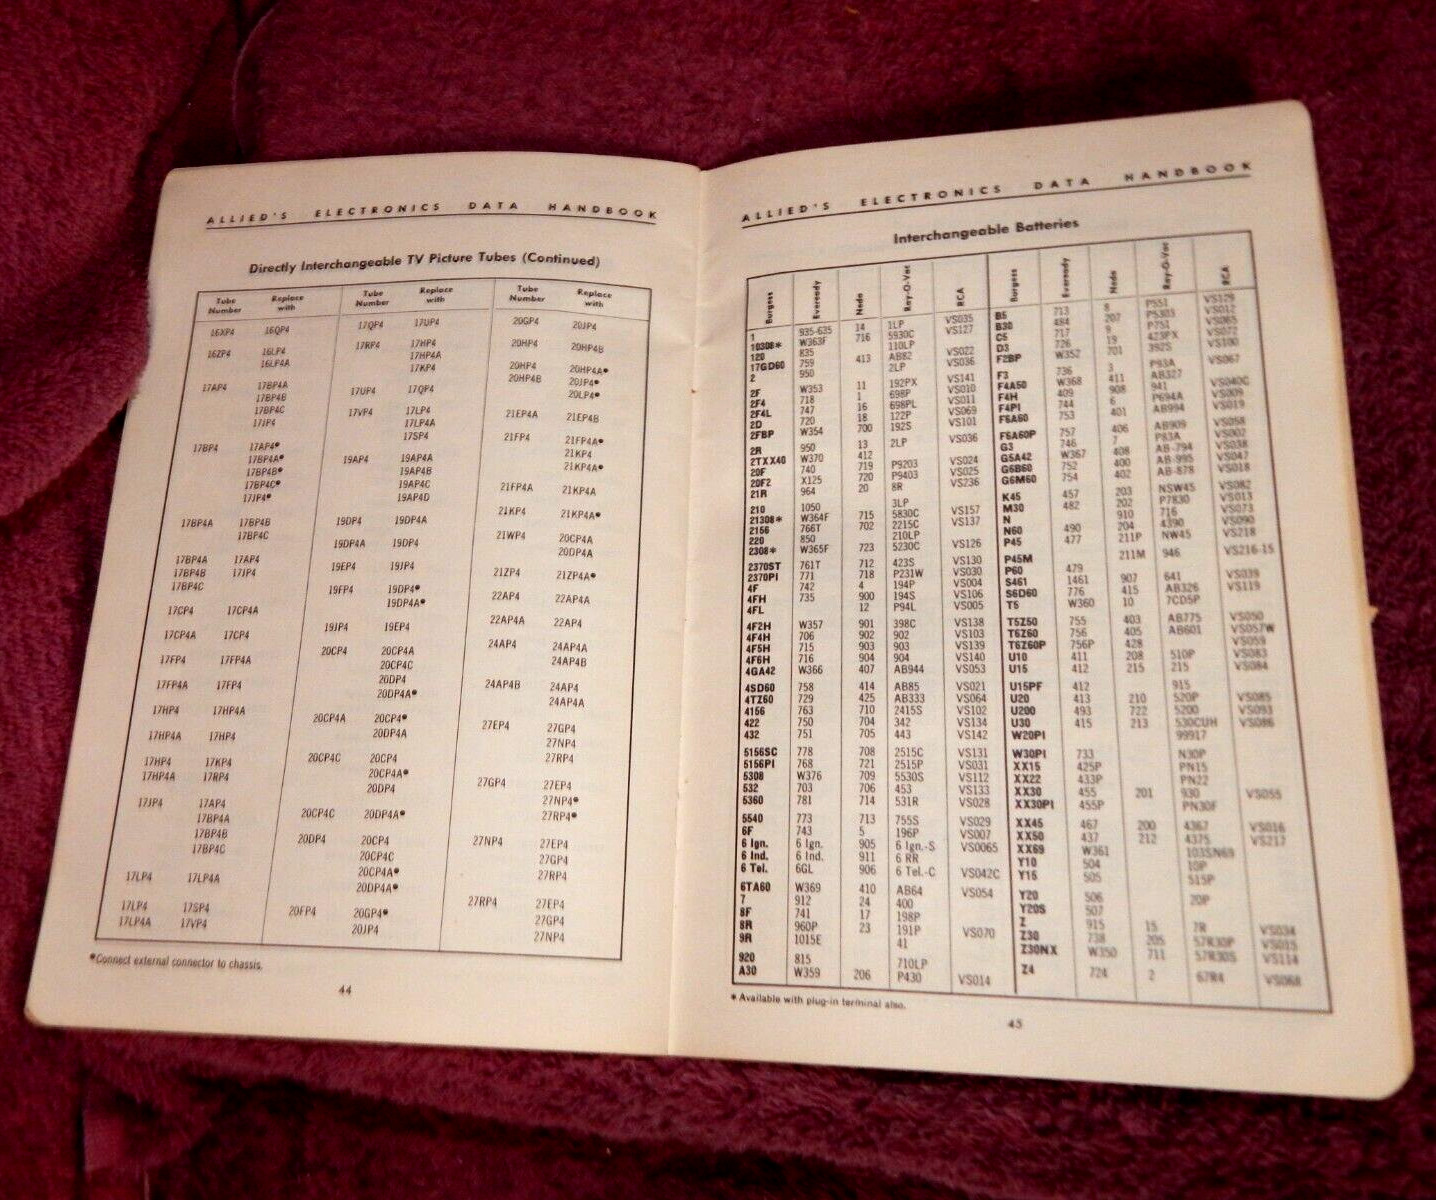 ALLIED'S ELECTRONICS DATA HANDBOOK
Directly Interchangeable TV Picture Tubes (Continued)
Tube Number Replace with Tube Number Replace with Tube Number Replace with
16XP4 16QP4
16ZP4 16LP4
16LP4A
17AP4 17BP4A
17BP4B
17BP4C
17JP4
17BP4 17AP4*
17BP4A*
17BP4B*
17BP4C*
17JP4*
17BP4A 17BP4B
17BP4C
17BP4A 17AP4
17BP4B 17JP4
17BP4C
17CP4 17CP4A
17CP4A 17CP4
17FP4 17FP4A
17FP4A 17FP4
17HP4 17HP4A
17HP4A 17HP4
17HP4 17KP4
17HP4A 17RP4
17JP4 17AP4
17BP4A
17BP4B
17BP4C
17LP4 17LP4A
17LP4 17SP4
17LP4A 17VP4
17QP4 17UP4
17RP4 17HP4
17HP4A
17KP4
17UP4 17QP4
17VP4 17LP4
17LP4A
17SP4
19AP4 19AP4A
19AP4B
19AP4C
19AP4D
19DP4 19DP4A
19DP4A 19DP4
19EP4 19JP4
19FP4 19DP4*
19DP4A*
19JP4 19EP4
20CP4 20CP4A
20CP4C
20DP4
20DP4A*
20CP4A 20CP4*
20DP4A
20CP4C 20CP4
20CP4A*
20DP4
20CP4C 20DP4A*
20DP4 20CP4
20CP4C
20CP4A*
20DP4A*
20FP4 20GP4*
20JP4
20GP4 20JP4
20HP4 20HP4B
20HP4 20HP4A*
20HP4B 20JP4*
20LP4*
21EP4A 21EP4B
21FP4 21FP4A*
21KP4
21KP4A*
21FP4A 21KP4A
21KP4 21KP4A*
21WP4 20CP4A
20DP4A
21ZP4 21ZP4A*
22AP4 22AP4A
22AP4A 22AP4
24AP4 24AP4A
24AP4B
24AP4B 24AP4
24AP4A
27EP4 27GP4
27NP4
27RP4
27GP4 27EP4
27NP4*
27RP4*
27NP4 27EP4
27GP4
27RP4
27RP4 27EP4
27GP4
27NP4
*Connect external connector to chassis.
44
ALLIED'S ELECTRONICS DATA HANDBOOK
Interchangeable Batteries
Burgess Eveready Neda Ray-O-Vac RCA Burgess Eveready Neda Ray-O-Vac RCA
1 935-635 14 1LP VS035
10308* W363F 716 5930C VS127
120 835 110LP
17GD60 759 413 AB82 VS022
2 950 2LP VS036
2F W353 11 192PX VS141
2F4 718 1 698P VS010
2F4L 747 16 698PL VS011
2D 720 18 122P VS069
2FBP W354 700 192S VS101
2R 950 13 2LP VS036
2TXX40 W370 412
20F 740 719 P9203 VS024
20F2 X125 720 P9403 VS025
21R 964 20 8R VS236
210 1050 3LP
21308* W364F 715 5830C VS157
2156 766T 702 2215C VS137
220 850 210LP
2308* W365F 723 5230C VS126
2370ST 761T 712 423S VS130
2370PI 771 718 P231W VS030
4F 742 4 194P VS004
4FH 735 900 194S VS106
4FL 12 P94L VS005
4F2H W357 901 398C VS138
4F4H 706 902 902 VS103
4F5H 715 903 903 VS139
4F6H 716 904 904 VS140
4GA42 W366 407 AB944 VS053
4SD60 758 414 AB85 VS021
4TZ60 729 425 AB333 VS064
4156 763 710 2415S VS102
422 750 704 342 VS134
432 751 705 443 VS142
5156SC 778 708 2515C VS131
5156PI 768 721 2515P VS031
5308 W376 709 5530S VS112
532 703 706 453 VS133
5360 781 714 531R VS028
5540 773 713 755S VS029
6F 743 5 196P VS007
6 Ign. 6 Ign. 905 6 Ign.-S VS0065
6 Ind. 6 Ind. 911 6 RR
6 Tel. 6GL 906 6 Tel.-C VS042C
6TA60 W369 410 AB64 VS054
7 912 24 400
8F 741 17 198P
8R 960P 23 191P VS070
9R 1015E 41
920 815 710LP
A30 W359 206 P430 VS014
B5 713 8 P551 VS129
B30 484 207 P5303 VS012
C5 717 9 P751 VS065
D3 726 19 423PX VS072
F2BP W352 701 392S VS100
F3 736 3 P93A VS067
F4A50 W368 411 AB327
F4H 409 908 941 VS040C
F4PI 744 6 P694A VS009
F6A60 753 401 AB994 VS019
F6A60P 757 406 AB909 VS058
G3 746 7 P83A VS002
G5A42 W367 408 AB-794 VS038
G6B60 752 400 AB-995 VS047
G6M60 754 402 AB-878 VS018
K45 457 203 NSW45 VS082
M30 482 202 P7830 VS013
N 910 716 VS073
N60 490 204 4390 VS090
P45 477 211P NW45 VS218
P45M 211M 946 VS216-15
P60 479
S461 1461 907 641 VS039
S6D60 776 415 AB326 VS119
T5 W360 10 7CD5P
T5Z50 755 403 AB775 VS050
T6Z60 756 405 AB601 VS057W
T6Z60P 756P 428 VS059
U10 411 208 510P VS083
U15 412 215 215 VS084
U15PF 412 915
U20 413 210 520P VS085
U200 493 722 5200 VS093
U30 415 213 530CUH VS086
W20PI 99917
W30PI 733 N30P
XX15 425P PN15
XX22 433P PN22
XX30 455 201 930 VS055
XX30PI 455P PN30F
XX45 467 200 4367 VS016
XX50 437 212 4375 VS217
XX69 W361 103SN69
Y10 504 10P
Y15 505 515P
Y20 506 20P
Y20S 507
Z 915 15 7R VS034
Z30 738 205 57R30P VS015
Z30NX W350 711 57R30S VS114
Z4 724 2 67R4 VS068
* Available with plug-in terminal also.
45